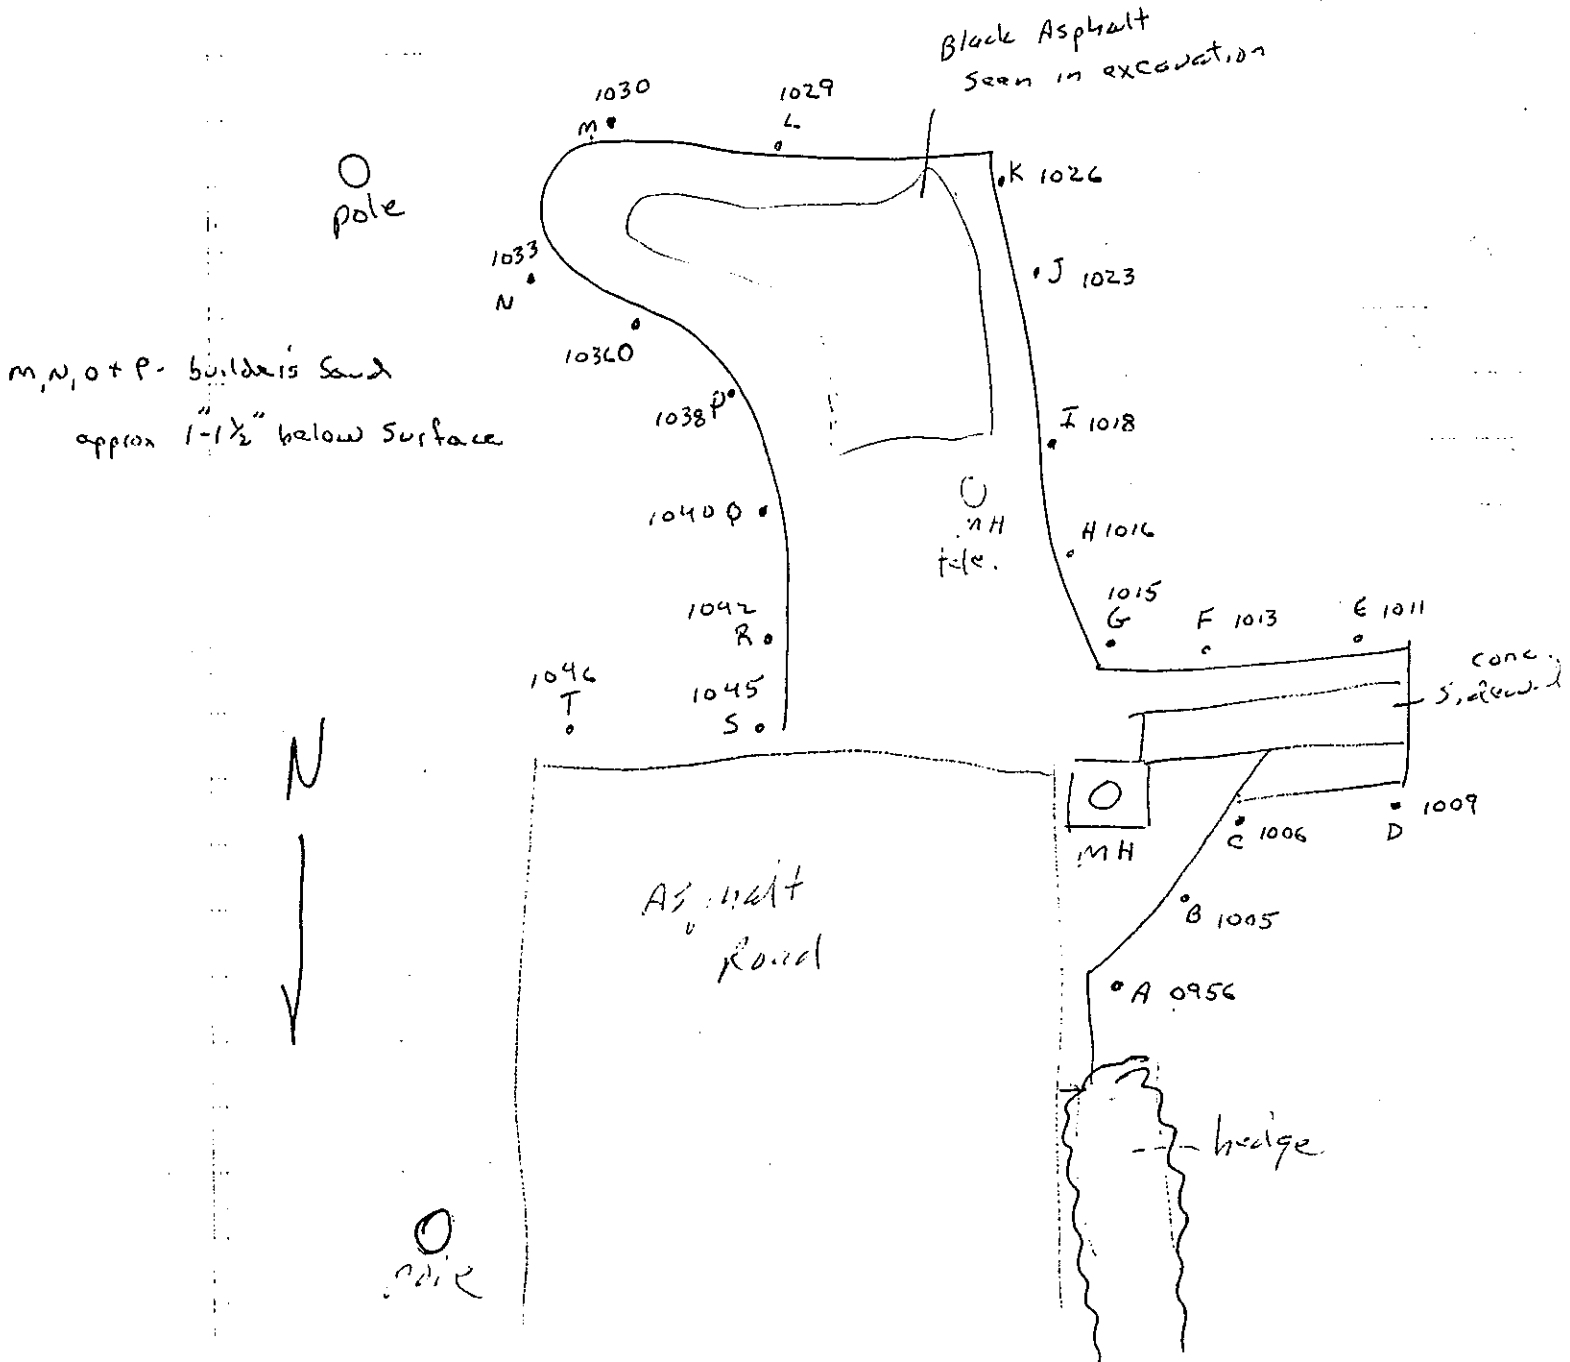 Black Asphalt
seen in excavation
1030
M
1029
L
K 1026
pole
1033
N
J 1023
1036 O
M, N, O + P - builder's Sand
approx 1"-1½" below Surface
1038 P
I 1018
1040 Q
MH
tele.
H 1016
1015
G
F 1013
E 1011
1042
R
conc.
1046
T
1045
S
N
D 1009
C 1006
MH
Asphalt
Road
B 1005
A 0956
hedge
pole